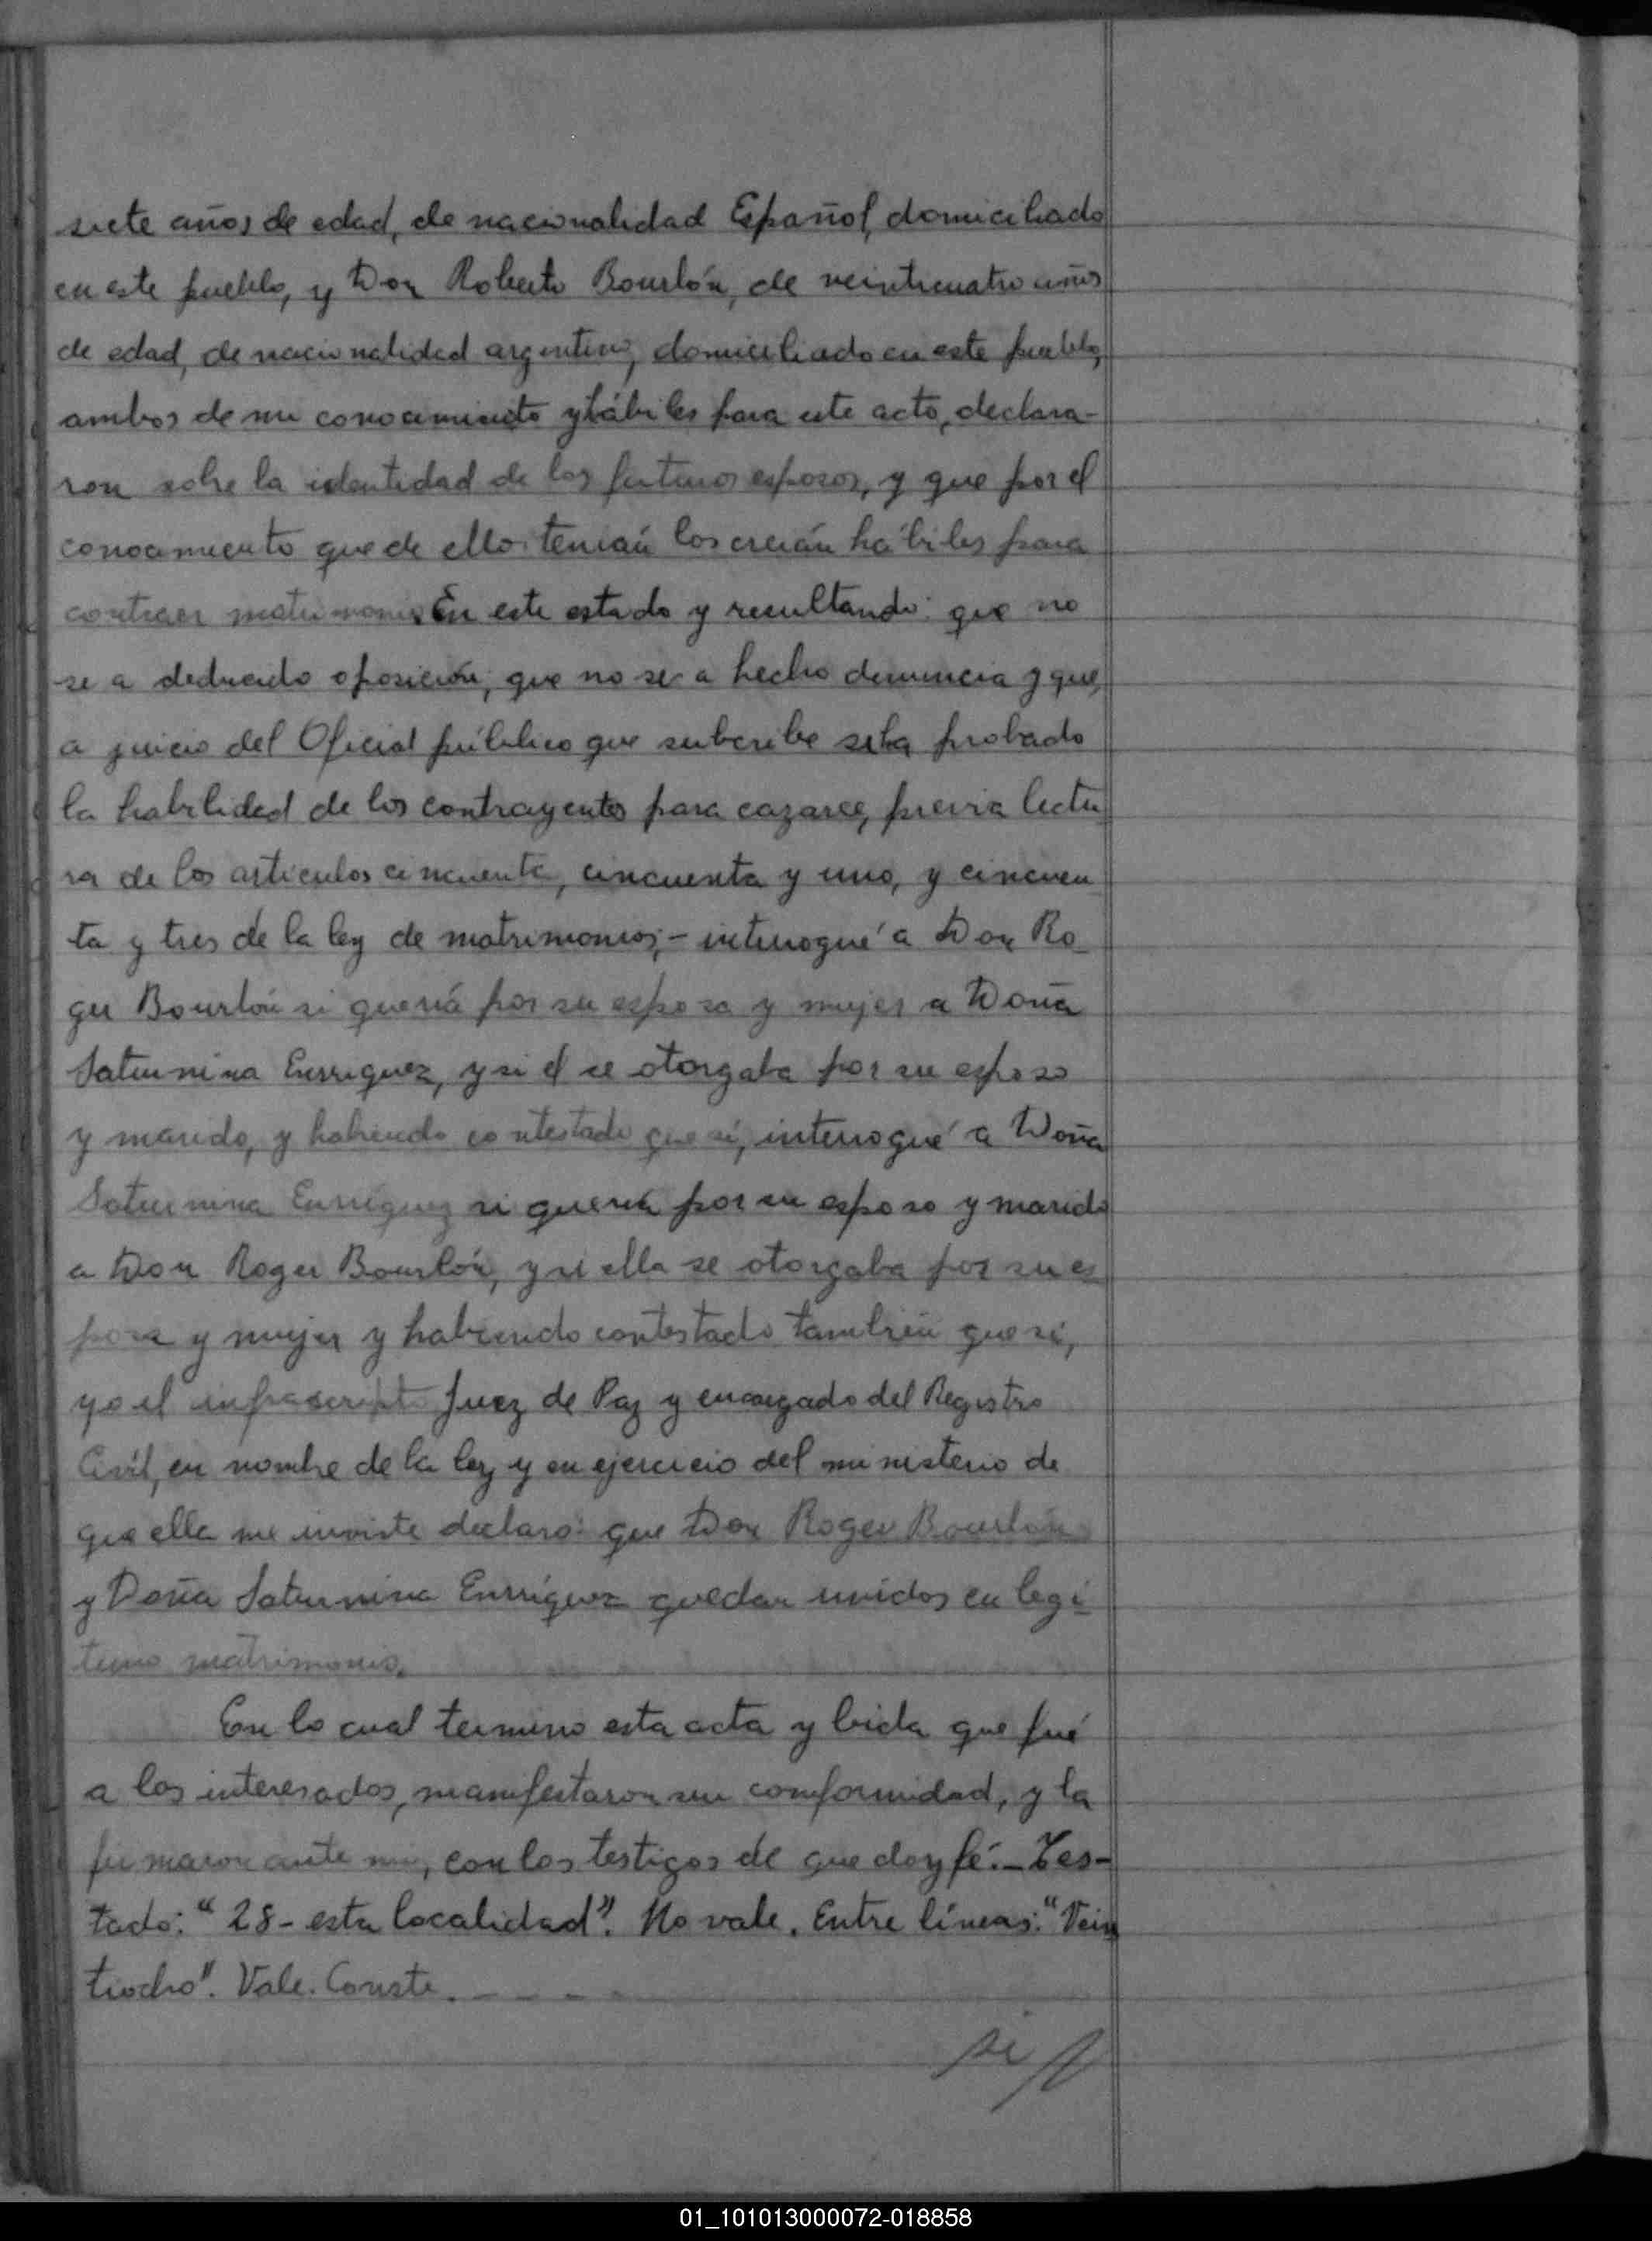 siete años de edad, de nacionalidad Español, domiciliado
en este pueblo, y Don Roberto Bourlón, de veinticuatro años
de edad, de nacionalidad argentino, domiciliado en este pueblo,
ambos de mi conocimiento y hábiles para este acto, declara-
ron sobre la identidad de los futuros esposos, y que por el
conocimiento que de ellos tenían los creían hábiles para
contraer matrimonio. En este estado y resultando: que no
se a deducido oposición; que no se a hecho denuncia y que,
a juicio del Oficial público que subcribe se ha probado
la habilidad de los contrayentes para cazarce, previa lectu
ra de los artículos cincuenta, cincuenta y uno, y cincuen
ta y tres de la ley de matrimonios;- interrogué a Don Ro-
ger Bourlón si quería por su esposa y mujer a Doña
Saturnina Enrriquez, y si el se otorgaba por su esposo
y marido, y habiendo contestado que sí, interrogué a Doña
Saturnina Enrríquez si quería por su esposo y marido
a Don Roger Bourlón, y si ella se otorgaba por su es-
posa y mujer y habiendo contestado también que sí,
yo el infrascripto Juez de Paz y encargado del Registro
Civil, en nombre de la ley y en ejercicio del ministerio de
que ella me inviste declaro: que Don Roger Bourlón
y Doña Saturnina Enrríquez quedan unidos en legí-
timo matrimonio.
En lo cual termino esta acta y leida que fué
a los interesados, manifestaron su comformidad, y la
firmaron ante mi, con los testigos de que doy fé.- Tes-
tado: "28- esta localidad". No vale. Entre líneas: "Vein
tiocho". Vale. Conste. - - - -
01_101013000072-018858